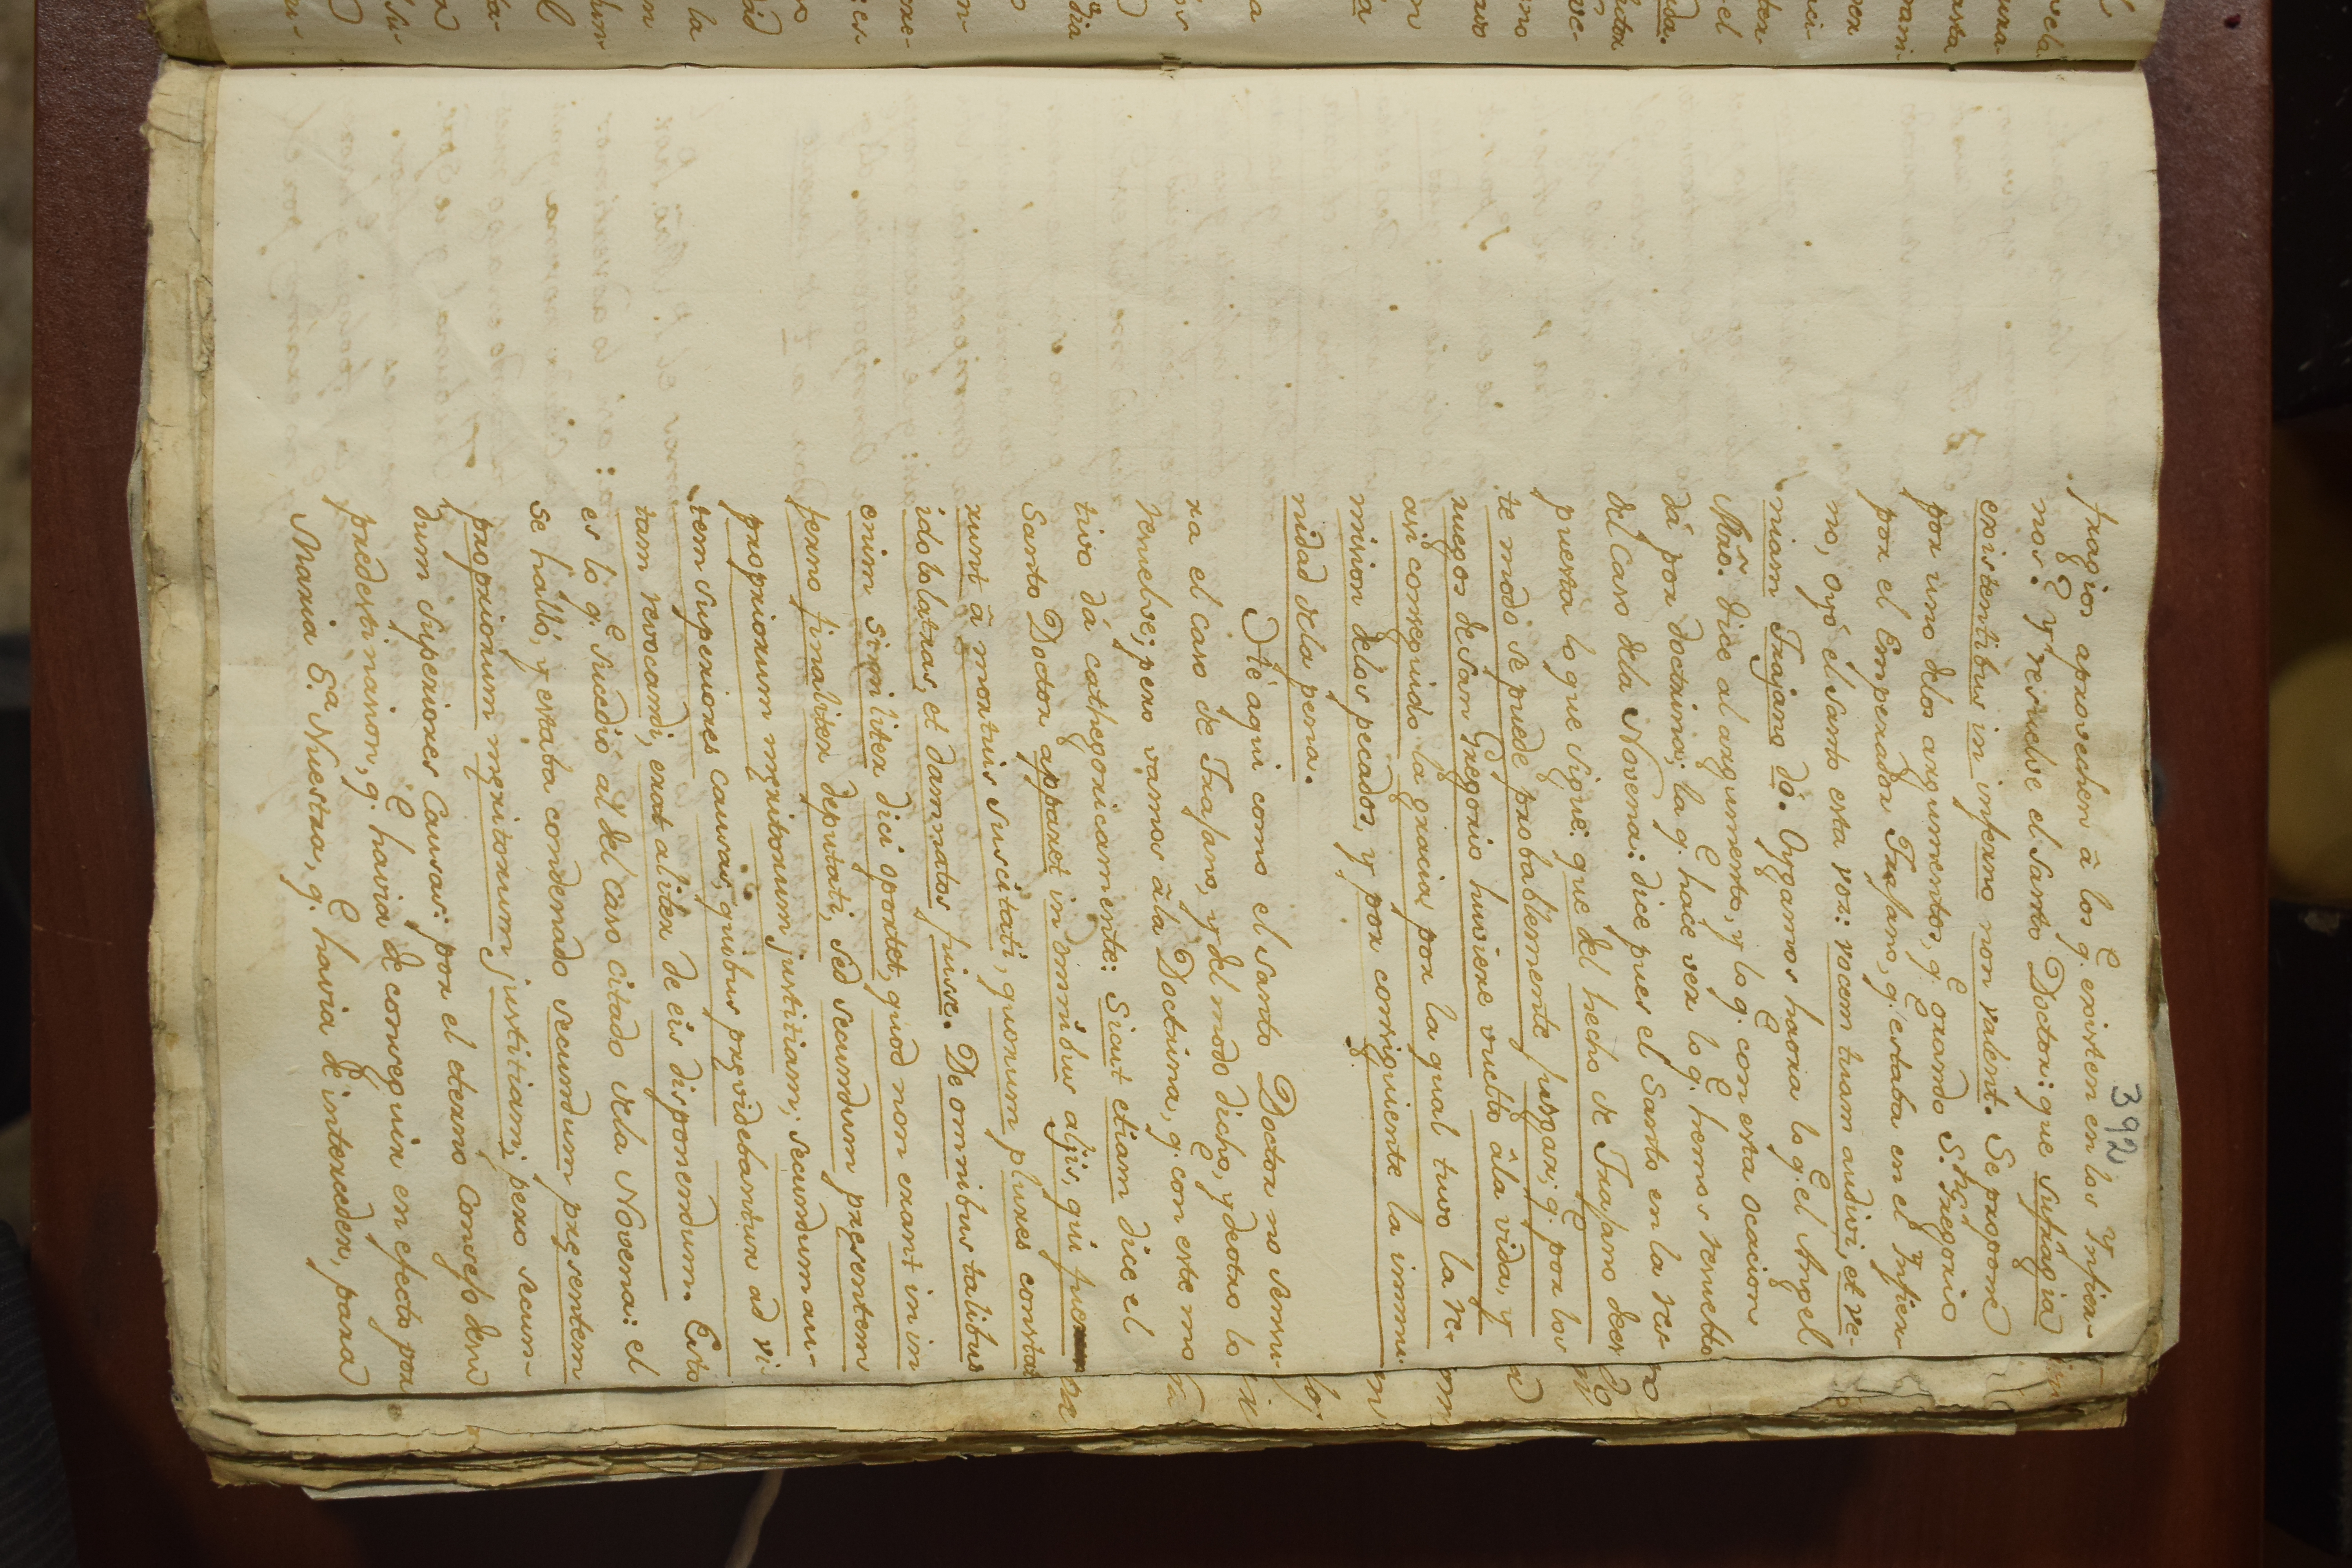 392
fragios aprovechen â los q.e existen en los Ynfier-
nos? Y resuelve el Santo Doctor: que sufragia
existentibus in inferno non valent. Se propone
por uno delos argumentos, q.e orando S. Gregorio
por el Emperador Trajano, q.e estaba en el Ynfier-
no, oyó el Santo esta voz: vocem tuam audivi, et ve-
niam Trajano do. Oygamos haora lo q.e el Angel
Mrô. dice al argumento, y lo q.e con esta ocacion
dá por doctrina; la q.e hace ver lo q.e hemos resuelto
del Caso dela Novena: dice pues el Santo en la res-
puesta lo que sigue: que del hecho de Trajano de es-
te modo se puede probablemente juzgar; q.e por los
ruegos de San Gregorio huviere vuelto âla vida, y
asi conseguido la gracia, por la qual tuvo la re-
mision delos pecados, y por consiguiente la immu-
nidad dela pena.
He aqui como el Santo Doctor no sensu-
ra el caso de Trajano, y del modo dicho, y de otro lo
resuelve; pero vamos âla Doctrina, q.e con este mo
tivo dá cathegoricamente: Sicut etiam dice el
Santo Doctor apparet in omnibus alijs, qui fue
runt â mortuis suscitati, quorum plures constat
idolatras, et damnatos fuisse. De omnibus talibus
enim similiter dici oportet, quod non erant in in
ferno finaliter deputati, sed secundum presentem
propriorum meritorum justitiam; secundum au-
tem superiores causas, quibus prævidebantur ad vi-
tam revocandi, erat aliter de eis disponendum. Esto
es lo q.e sucedió al del caso citado dela Novena: el
se halló, y estaba condenado secundum præsentem
propriorum meritorum justitiam; pero secun-
dum superiores Causas: por el eterno Consejo de su
predestinasion, q.e havia de conseguir en efecto por
Maria S.a Nuestra, q.e havia de interceder, para